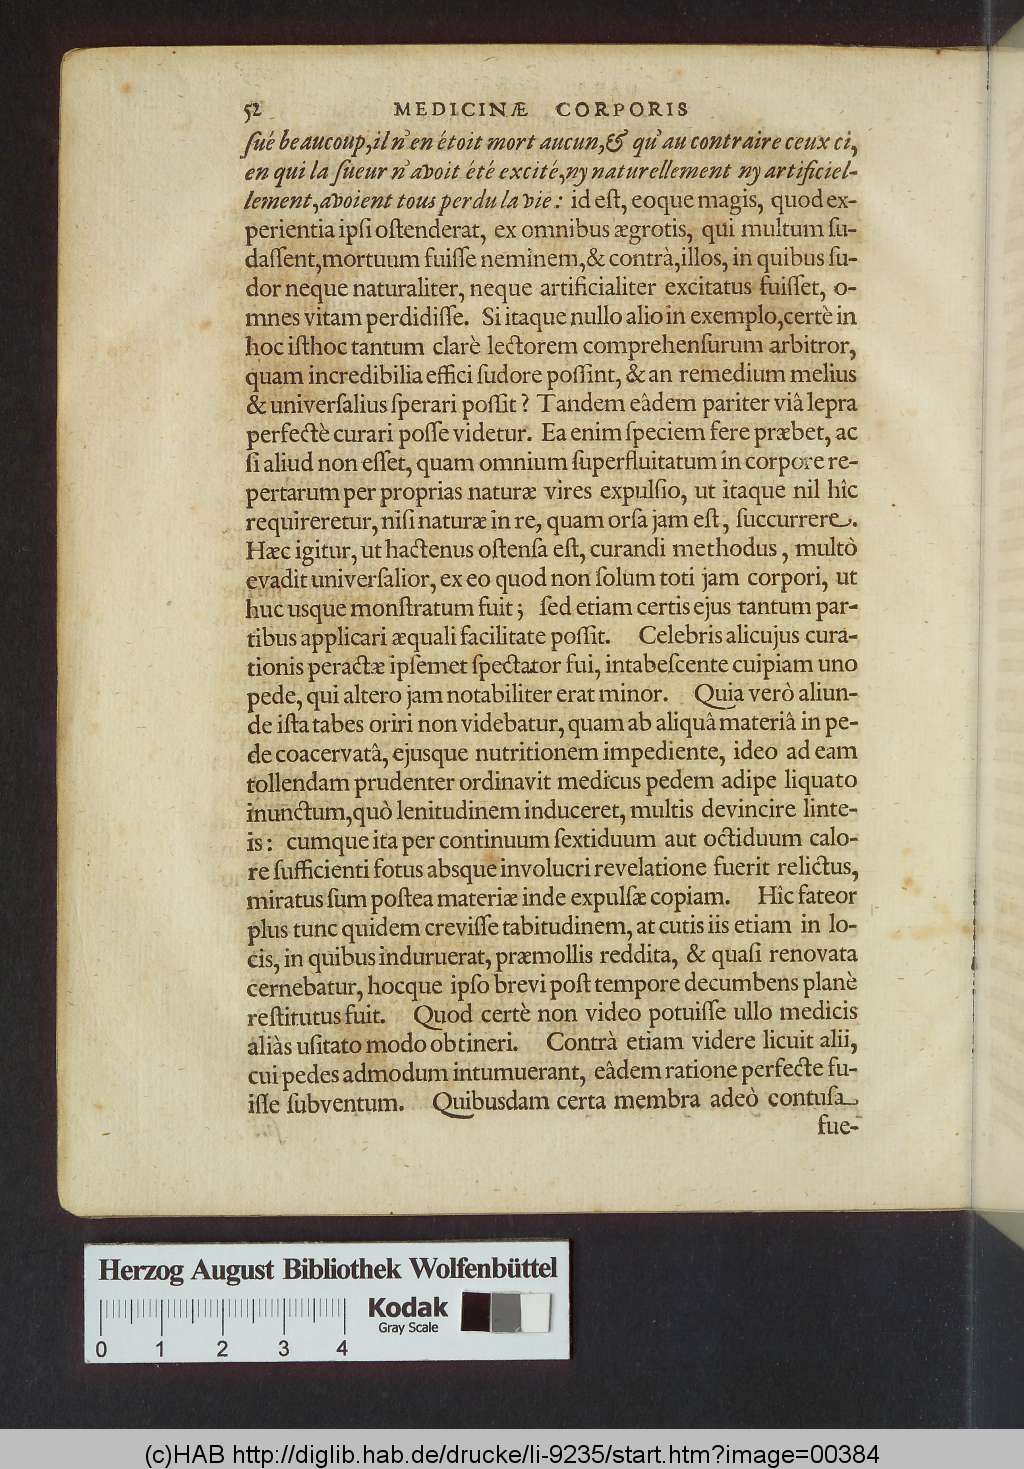 52 MEDICINÆ CORPORIS
ſué beaucoup,il n'en étoit mort aucun,& qu'au contraire ceux ci,
en qui la ſueur n'avoit été excité,ny naturellement ny artificiel-
lement,avoient tous perdu la vie: id eſt, eoque magis, quod ex-
perientia ipſi oſtenderat, ex omnibus ægrotis, qui multum ſu-
daſſent,mortuum fuiſſe neminem,& contrà,illos, in quibus ſu-
dor neque naturaliter, neque artificialiter excitatus fuiſſet, o-
mnes vitam perdidiſſe. Si itaque nullo alio in exemplo,certè in
hoc iſthoc tantum clarè lectorem comprehenſurum arbitror,
quam incredibilia effici ſudore poſſint, & an remedium melius
& univerſalius ſperari poſſit? Tandem eâdem pariter viâ lepra
perfectè curari poſſe videtur. Ea enim ſpeciem fere præbet, ac
ſi aliud non eſſet, quam omnium ſuperfluitatum in corpore re-
pertarum per proprias naturæ vires expulſio, ut itaque nil hîc
requireretur, niſi naturæ in re, quam orſa jam eſt, ſuccurrere.
Hæc igitur, ut hactenus oſtenſa eſt, curandi methodus, multò
evadit univerſalior, ex eo quod non ſolum toti jam corpori, ut
huc usque monſtratum fuit; ſed etiam certis ejus tantum par-
tibus applicari æquali facilitate poſſit. Celebris alicujus cura-
tionis peractæ ipſemet ſpectator fui, intabeſcente cuipiam uno
pede, qui altero jam notabiliter erat minor. Quia verò aliun-
de iſta tabes oriri non videbatur, quam ab aliquâ materiâ in pe-
de coacervatâ, ejusque nutritionem impediente, ideo ad eam
tollendam prudenter ordinavit medicus pedem adipe liquato
inunctum,quò lenitudinem induceret, multis devincire linte-
is: cumque ita per continuum ſextiduum aut octiduum calo-
re ſufficienti fotus absque involucri revelatione fuerit relictus,
miratus ſum poſtea materiæ inde expulſæ copiam. Hîc fateor
plus tunc quidem creviſſe tabitudinem, at cutis iis etiam in lo-
cis, in quibus induruerat, præmollis reddita, & quaſi renovata
cernebatur, hocque ipſo brevi poſt tempore decumbens planè
reſtitutus fuit. Quod certè non video potuiſſe ullo medicis
aliàs uſitato modo obtineri. Contrà etiam videre licuit alii,
cui pedes admodum intumuerant, eâdem ratione perfecte fu-
iſſe ſubventum. Quibusdam certa membra adeò contuſa
fue-
Herzog August Bibliothek Wolfenbüttel
Kodak
Gray Scale
0 1 2 3 4
(c)HAB http://diglib.hab.de/drucke/li-9235/start.htm?image=00384